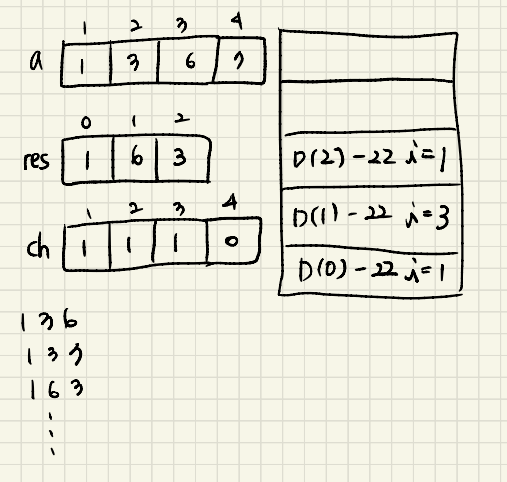 1 2 3 4
a 1 3 6 7
0 1 2
res 1 6 3
1 2 3 4
ch 1 1 1 0
1 3 6
1 3 7
1 6 3
D(2) - 22 i=1
D(1) - 22 i=3
D(0) - 22 i=1